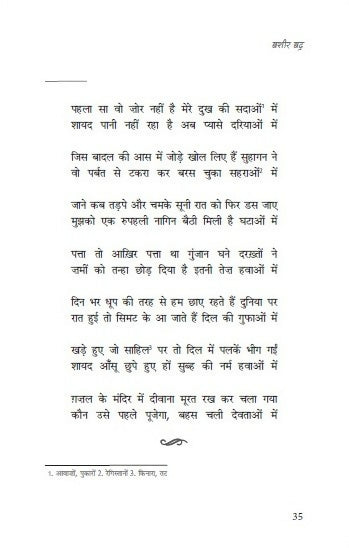 बशीर बद्र
पहला सा वो ज़ोर नहीं है मेरे दुख की सदाओं¹ में
शायद पानी नहीं रहा है अब प्यासे दरियाओं में
जिस बादल की आस में जोड़े खोल लिए हैं सुहागन ने
वो पर्बत से टकरा कर बरस चुका सहराओं² में
जाने कब तड़पे और चमके सूनी रात को फिर डस जाए
मुझको एक रुपहली नागिन बैठी मिली है घटाओं में
पत्ता तो आख़िर पत्ता था गुंजान घने दरख़्तों ने
ज़मीं को तन्हा छोड़ दिया है इतनी तेज़ हवाओं में
दिन भर धूप की तरह से हम छाए रहते हैं दुनिया पर
रात हुई तो सिमट के आ जाते हैं दिल की गुफाओं में
खड़े हुए जो साहिल³ पर तो दिल में पलकें भीग गईं
शायद आँसू छुपे हुए हों सुब्ह की नर्म हवाओं में
ग़ज़ल के मंदिर में दीवाना मूरत रख कर चला गया
कौन उसे पहले पूजेगा, बहस चली देवताओं में
1. आवाज़ों, पुकारों 2. रेगिस्तानों 3. किनारा, तट
35